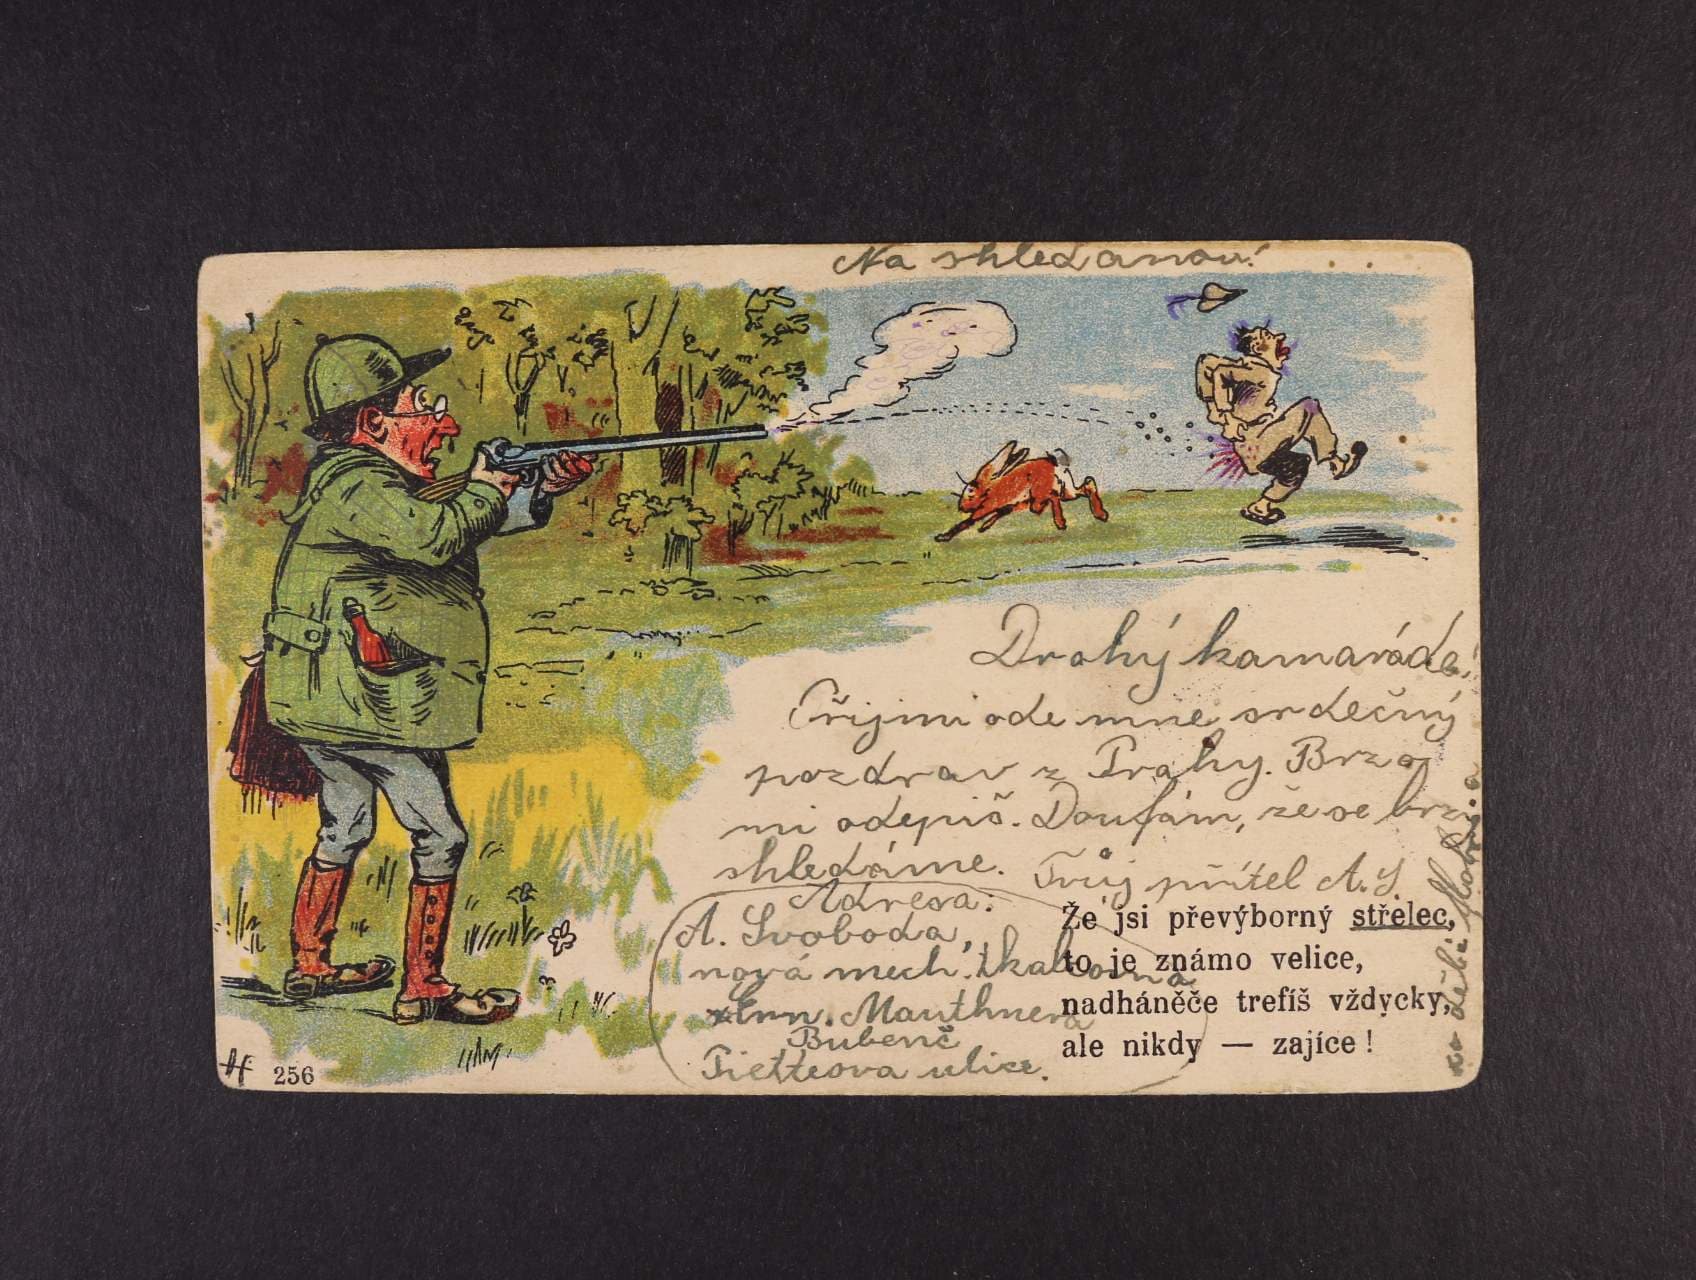 Na shledanou!
Drahý kamaráde!
Přijmi ode mne srdečný
pozdrav z Prahy. Brzo
mi odepiš. Doufám, že se brzy
shledáme. Tvůj přítel A. S.
Adresa:
A. Svoboda,
nová mech. tkalcovna
Mauthnera
Bubeneč
Pietteova ulice.
Že jsi převýborný střelec,
to je známo velice,
nadháněče trefíš vždycky,
ale nikdy — zajíce!
256